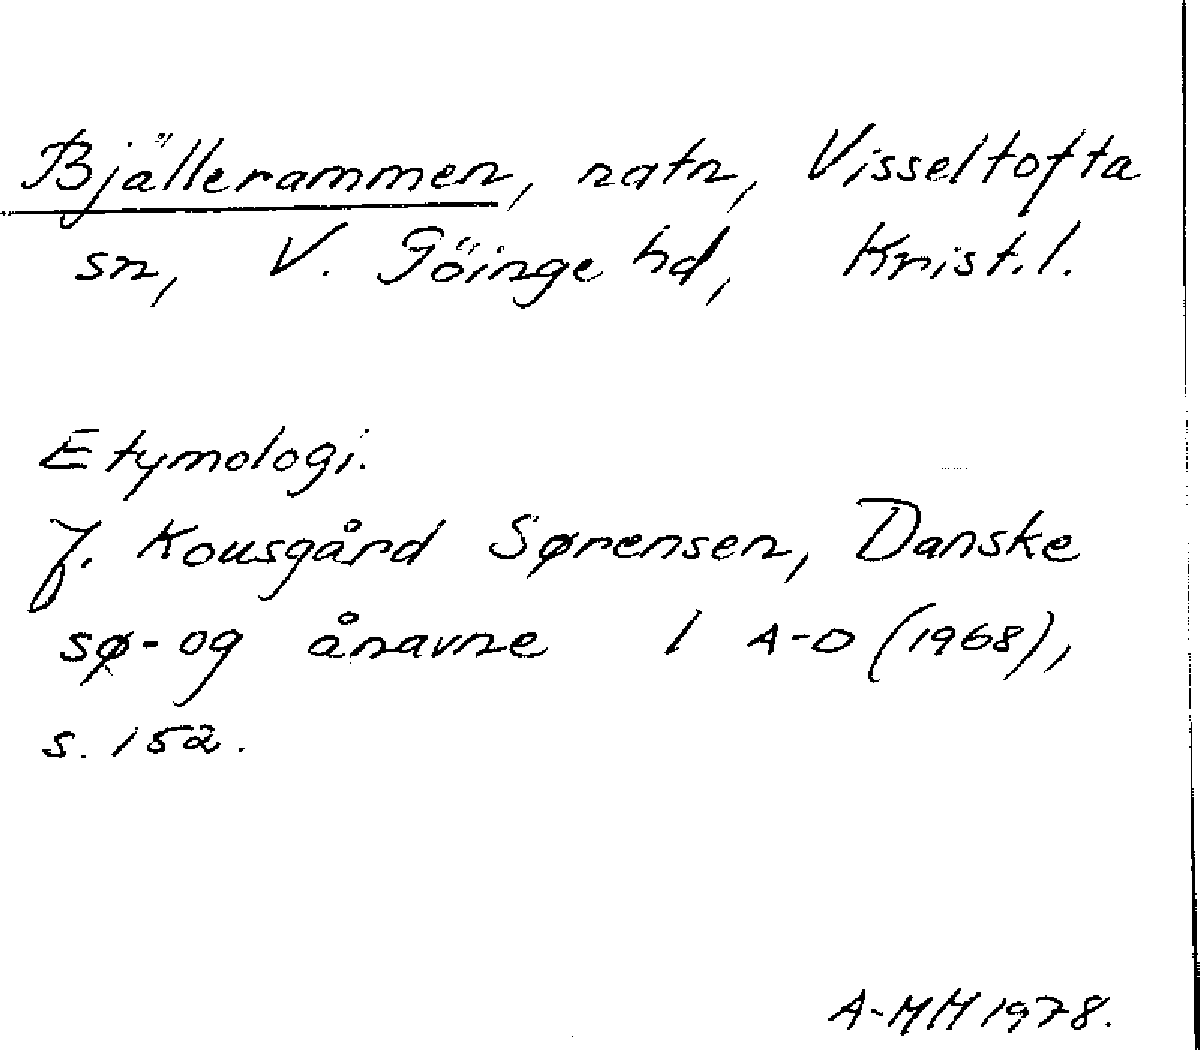 Bjällerammen, natn, Visseltofta
sn, V. Göinge hd, Krist.l.
Etymologi.
J. Kousgård Sørensen, Danske
sø- og ånavne I A-D (1968),
s. 152.
A-MM 1978.